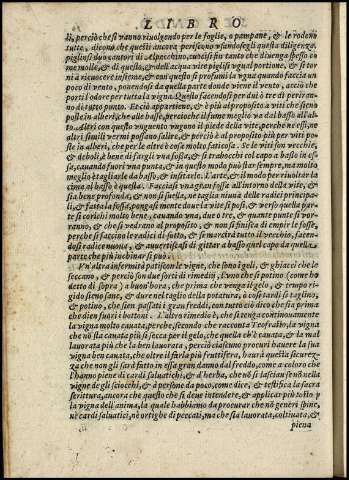 LIBRO
di, perciò che si vanno riuolgendo per le foglie, o pampane, & le rodono
tutte, dicono, che questi ancora periscono usandosegli questa diligenza,
piglinsi duo cantari di Alpecchino, cuocasi fin tanto che diuenga spesso come
melle, & di questo, & dell'acqua vite piglisi vgual portione, & si tor
ni à ricuocere insieme, & con questo si profumi la vigna quando faccia un
poco di vento, ponendosi da quella parte donde viene il vento, acciò che
porti l'odore per tutta la vigna. Questo facendosi per dui ò tre dì periranno
di tutto punto. Et ciò appartiene, & è più al proposito à viti che sieno
poste in alberi, che alle basse, percioche il fume meglio va dal basso all'al
to. Altri con questo vnguento vngono il piede della vite, perche nè essi, ne
altri simili vermi possano salire, & perciò è al proposito più per viti po
ste in alberi, che per le altre è cosa molto faticosa. Se le viti son vecchie,
& deboli, è ben di fargli vna fossa, & si trabocchi col capo à basso in es
sa, cauando fuori vna punta, & in questo modo può star sempre, ma molto
meglio è tagliarle da basso, & insitarle. L'arte, & il modo per riuoltar la
cima al basso è questa. Facciasi vna gran fossa all'intorno della vite, &
sia bene profonda, & non si suella, ne taglia niuna delle radici principa-
li, & fatta la fossa, pongasi mente doue la vite si posi, & verso quella par-
te si corichi molto bene, cauando vna, due o tre, & quante punte si vor-
ranno, & che si vedranno al proposito, & non si finisca di empir le fosse,
perche si faccino le radici di sotto, & se morrà tutto il vecchio, facen-
dosi radice nuoua, & auuertiscasi di gittar à basso quel capo da quella
parte che più inchinar si può.
Vn'altra infermità patiscon le vigne, che sono i geli, & ghiacci che le
seccano, & perciò son due sorti di rimedij, l'vno che si potino (come ho
detto di sopra) a buon'hora, prima che venga il gelo, & tempo ri-
gido sieno sane, & dure nel taglio della potatura, ò costardi se taglino,
& potino, che sien passati i gran freddi, con tutto ciò dico che sia prima
che dien fuori i bottoni. L'altro rimedio è, che si tenga continouamente
la vigna molto cauata, perche, secondo che racconta Teofrasto, la vigna
che nò sia cauata più si secca per il gelo, che quella ch'è cauata, & la mal
lauorata più che la ben lauorata, perciò dessimo procuri hauere la sua
vigna ben cauata, che oltre il farla più fruttifera, haurà questa sicurez-
za che non gli sarà fatto in essa gran danno dal freddo, come a coloro che
l'hanno piene di cardi saluatichi, & d'herba, che nò si lasciau se nò nella
vigne degli sciocchi, & à persone da poco, come dice, & testifica la sacra
scrittura, ancora che questo che si deue intendere, & applicar più tosto p
la vigna dell'anima, la quale habbiamo da procurar che nò generi spine,
nè cardi saluatici, nè ortighe di peccati, ma che sia lauorata, coltiuata, &
piena